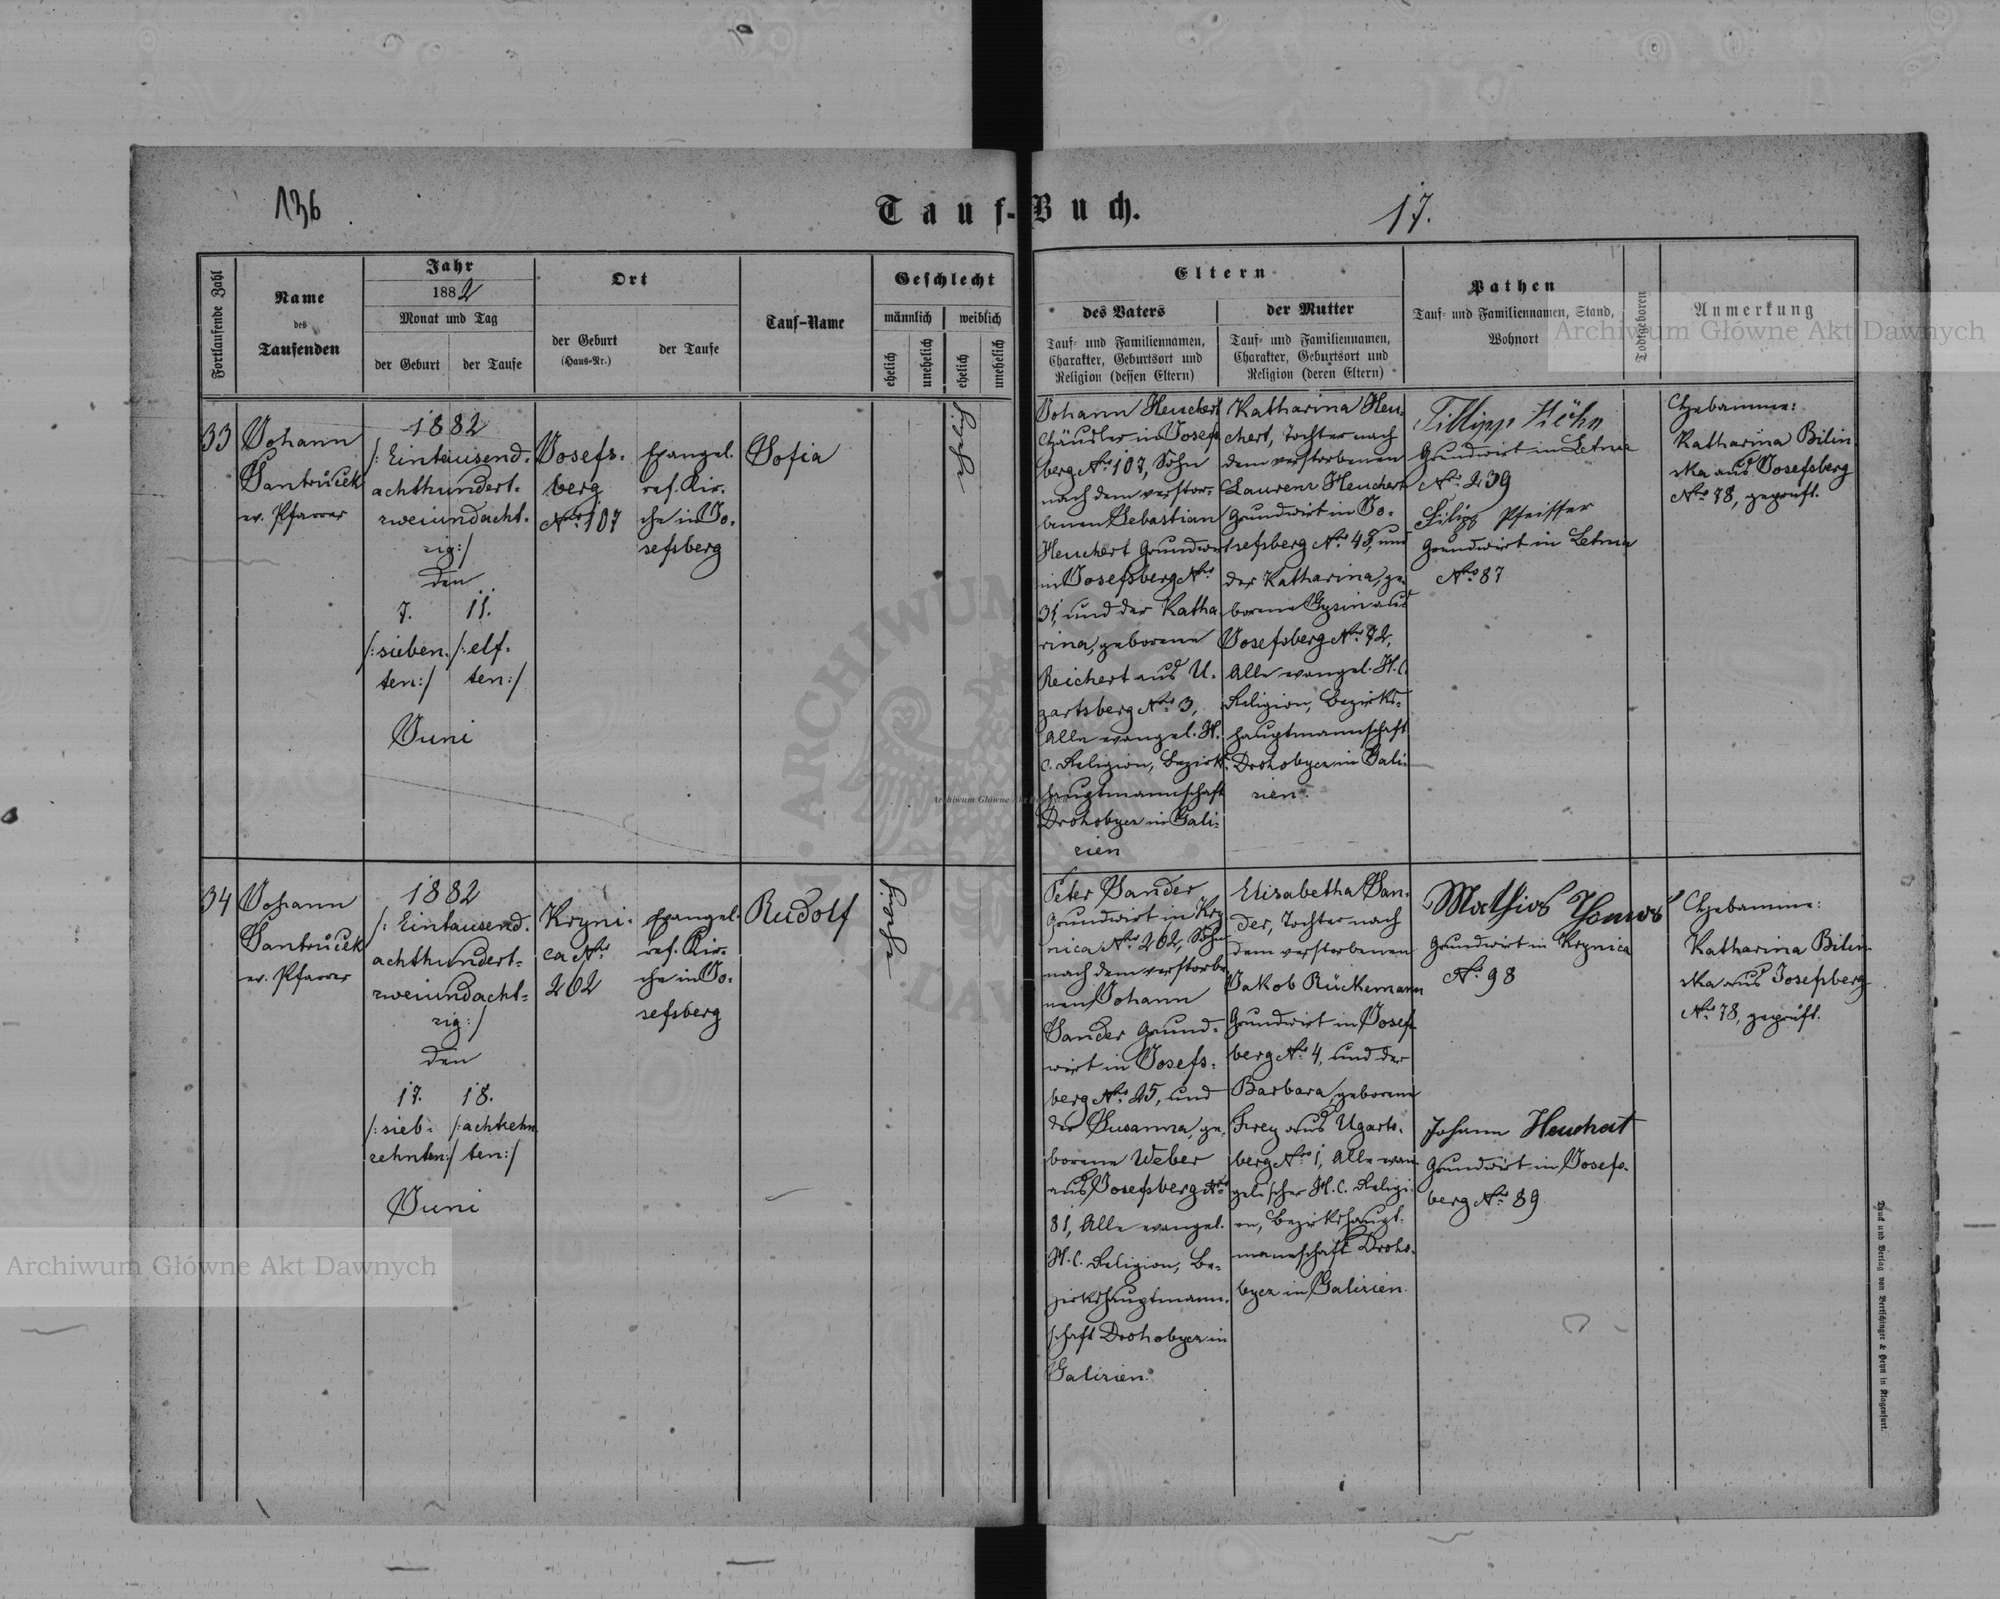 136
Tauf-Buch.
17.
Fortlaufende Zahl
Name
des
Taufenden
Jahr
1882
Monat und Tag
der Geburt
der Taufe
Ort
der Geburt
(Haus-Nr.)
der Taufe
Tauf-Name
Geschlecht
männlich
weiblich
ehelich
unehelich
ehelich
unehelich
Eltern
des Vaters
Tauf- und Familiennamen,
Charakter, Geburtsort und
Religion (dessen Eltern)
der Mutter
Tauf- und Familiennamen,
Charakter, Geburtsort und
Religion (deren Eltern)
Pathen
Tauf- und Familiennamen, Stand,
Wohnort
Todtgeboren
Anmerkung
33
Johann
Santrůček
ev. Pfarrer
1882
/: Eintausend-
achthundert-
zweiundacht-
zig :/
den
7. 11.
/: sieben- /: elf-
ten :/ ten :/
Juni
Josefs-
berg
Nro 107
Evangel.
ref. Kir-
che in Jo-
sefsberg
Sofia
ehelich
Johann Heuchert
Häusler in Josefs
berg Nro 107, Sohn
nach dem verstor-
benen Sebastian
Heuchert Grundwirt
in Josefsberg Nro
31, und der Katha-
rina, geborene
Reichert aus U-
gartsberg Nro 3,
Alle evangel. H.
C. Religion, Bezirks-
hauptmannschaft
Drohobycz in Gali-
zien
Katharina Heu-
chert, Tochter nach
dem verstorbenen
Laurenz Heuchert
Grundwirt in Jo-
sefsberg Nro 43, und
der Katharina, ge-
borene Gysin aus
Josefsberg Nro 72,
Alle evangel. H.C.
Religion, Bezirks-
hauptmannschaft
Drohobycz in Gali-
zien.
Fillipp Höhn
Grundwirt in Letnia
Nro 239
Filipp Pfeiffer
Grundwirt in Letnia
Nro 87
Hebamme:
Katharina Bilin
ska aus Josefsberg
Nro 78, geprüft.
34
Johann
Santrůček
ev. Pfarrer
1882
/: Eintausend-
achthundert-
zweiundacht-
zig :/
den
17. 18.
/: sieb- /: achtzehn
zehnten :/ ten :/
Juni
Kryni-
ca Nro
202
Evangel.
ref. Kir-
che in Jo-
sefsberg
Rudolf
ehelich
Peter Sander
Grundwirt in Kry
nica Nro 202, Sohn
nach dem verstorbe
nen Johann
Sander Grund-
wirt in Josefs-
berg Nro 25, und
der Susanna, ge-
borene Weber
aus Josefsberg Nro
81, Alle evangel.
H.C. Religion, Be-
zirkshauptmann-
schaft Drohobycz in
Galizien.
Elisabetha San-
der, Tochter nach
dem verstorbenen
Jakob Rückemann
Grundwirt in Josefs-
berg Nro 4, und der
Barbara, geborene
Frey aus Ugarts-
berg Nro 1, Alle evan
gelischer H.C. Religi-
on, Bezirkshaupt-
mannschaft Droho-
bycz in Galizien.
Mathias Thomas
Grundwirt in Krynica
Nro 98
Johann Heuchert
Grundwirt in Josefs-
berg Nro 89
Hebamme:
Katharina Bilin-
ska aus Josefsberg
Nro 78, geprüft.
Druck und Verlag von Bertschinger & Heyn in Klagenfurt.
Archiwum Główne Akt Dawnych
Archiwum Główne Akt Dawnych
Archiwum Główne Akt Dawnych